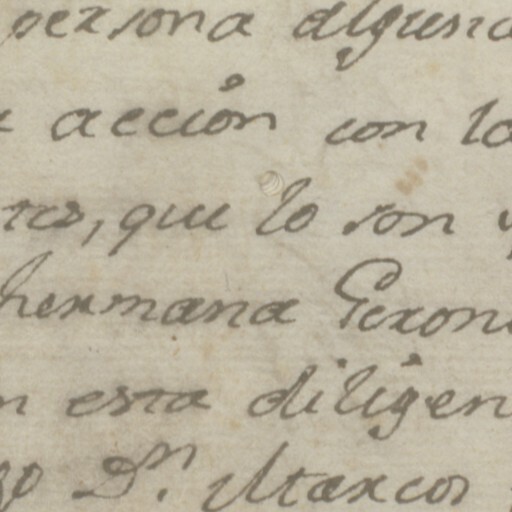 persona alguna
accion con lo
tes, que lo son
hermana Geron
n esta diligen
Dn. Marcos